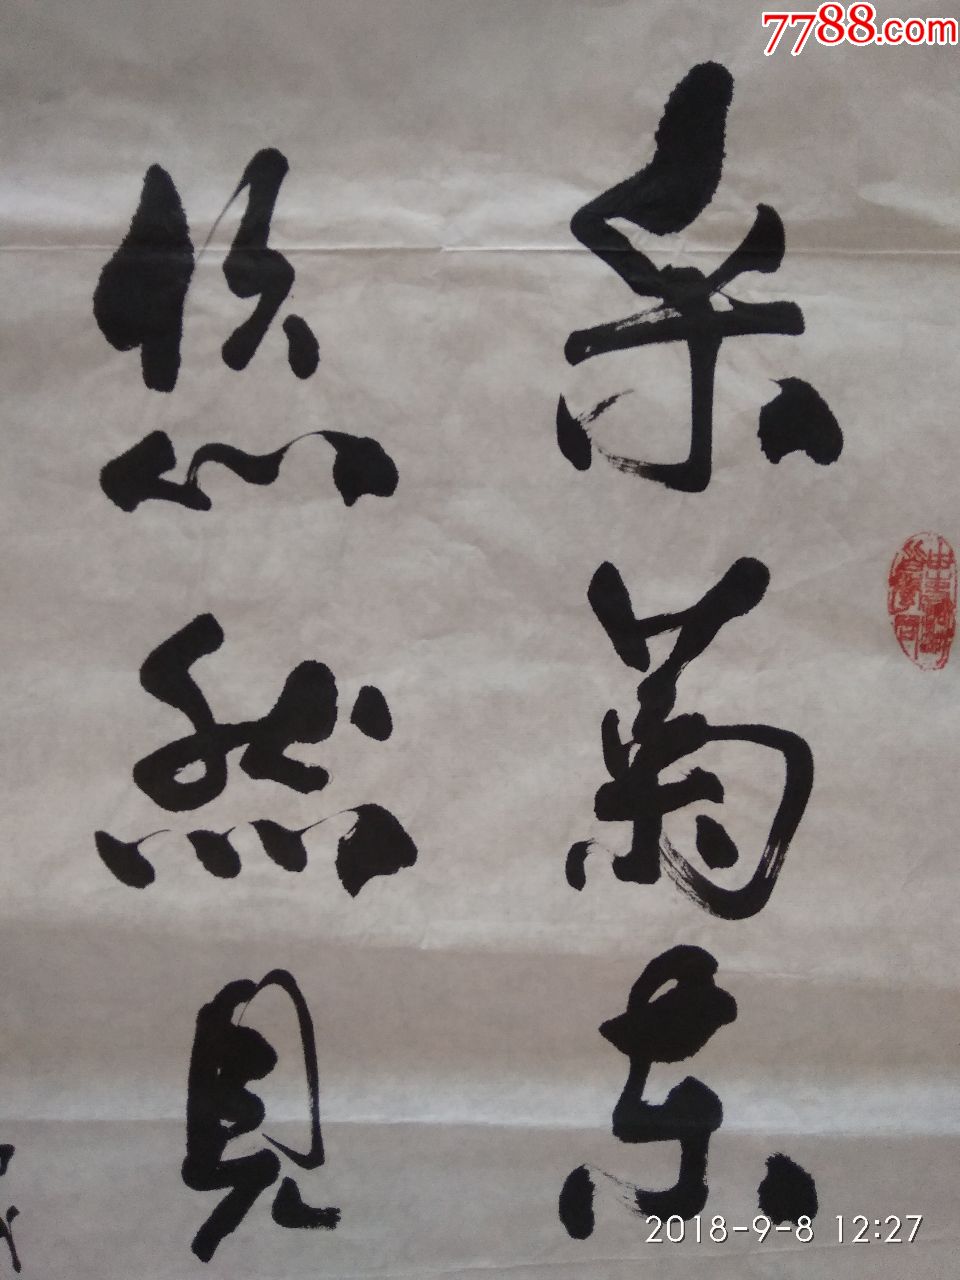 7788.com
采菊东
悠然见
2018-9-8 12:27